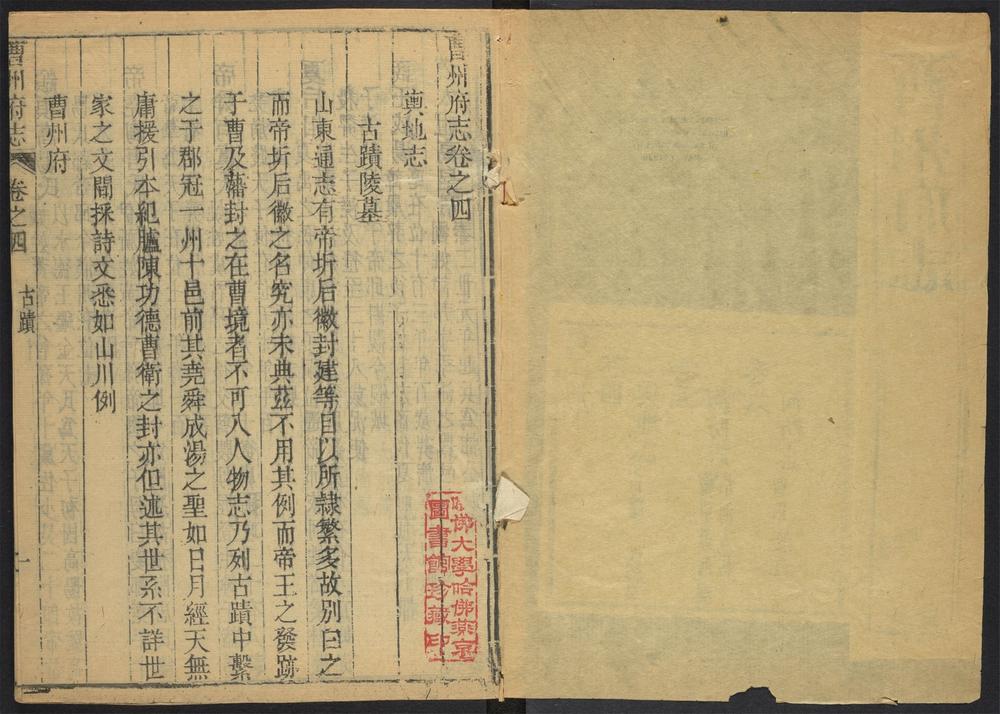 曹州府志卷之四
輿地志
古蹟陵墓
山東通志有帝圻后徽封建等目以所隷繁多故別曰之
而帝圻后徽之名究亦未典茲不用其例而帝王之發跡
于曹及藩封之在曹境者不可入人物志乃列古蹟中繫
之于郡冠一州十邑前其堯舜成湯之聖如日月經天無
庸援引本紀臚陳功德曹衛之封亦但述其世系不詳世
家之文間採詩文悉如山川例
曹州府
曹州府志 卷之四 古蹟 一
哈佛大學哈佛燕京
圖書館珍藏印